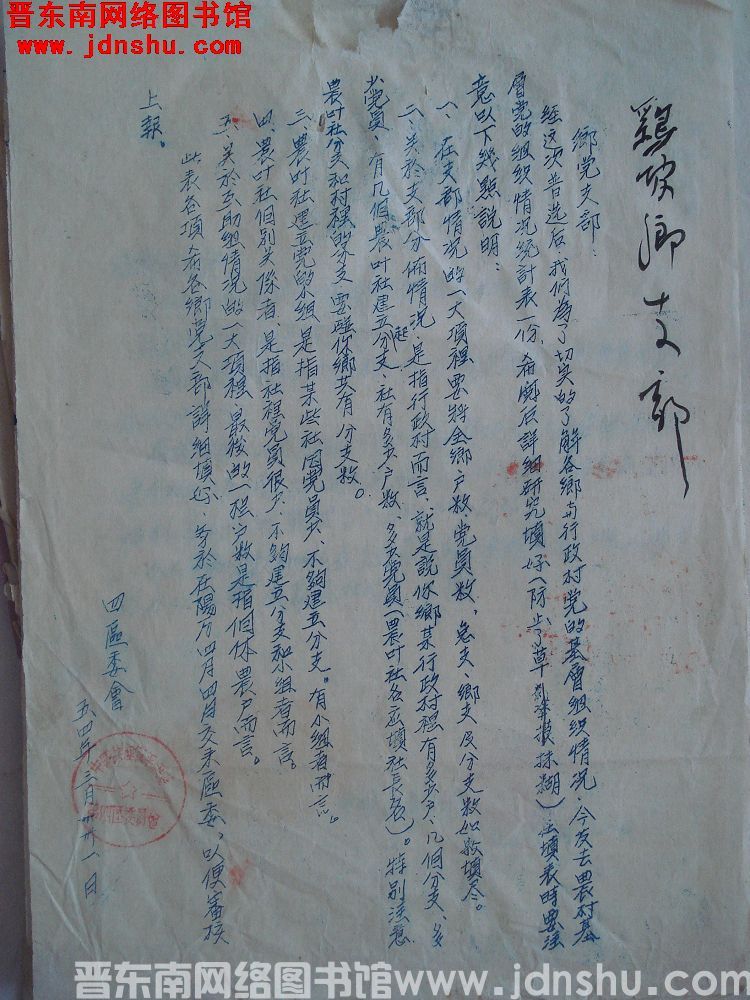 晋东南网络图书馆
www.jdnshu.com
鷄坡鄉支部
鄉党支部：
經这次普选后，我們為了切实的了解各鄉与行政村党的基層组织情况，今发去農村基
層党的组织情况統計表一份，希閱后詳細研究填好（防止了草率模抹糊）在填表時要注
意以下幾點説明：
一、在支部情况的一大項裡要将全鄉户数党員数，总支、鄉支及分支数如数填全。
二、关於支部分佈情况，是指行政村而言，就是説你鄉某行政村裡有多少户、几個分支、多
少党員，有几個農叶社建起分支、社有多少户数，多少党員（農叶社名应填社長名）。特别注意
農叶社分支和村裡的分支要联你鄉共有分支数。
三、農叶社建立党的小组，是指某些社因党員少，不夠建立分支，有小组者而言。
四、農叶社個别关係者，是指社裡党員很少，不夠建立分支和小组者而言。
五、关於互助组情况的一大項裡，最後的一栏户数是指個体農户而言。
此表各項希各鄉党支部詳細填好，务於在陽历四月四日交来區委，以便審核
上報。
四區委會
五四年三月卅一日
晋东南网络图书馆www.jdnshu.com